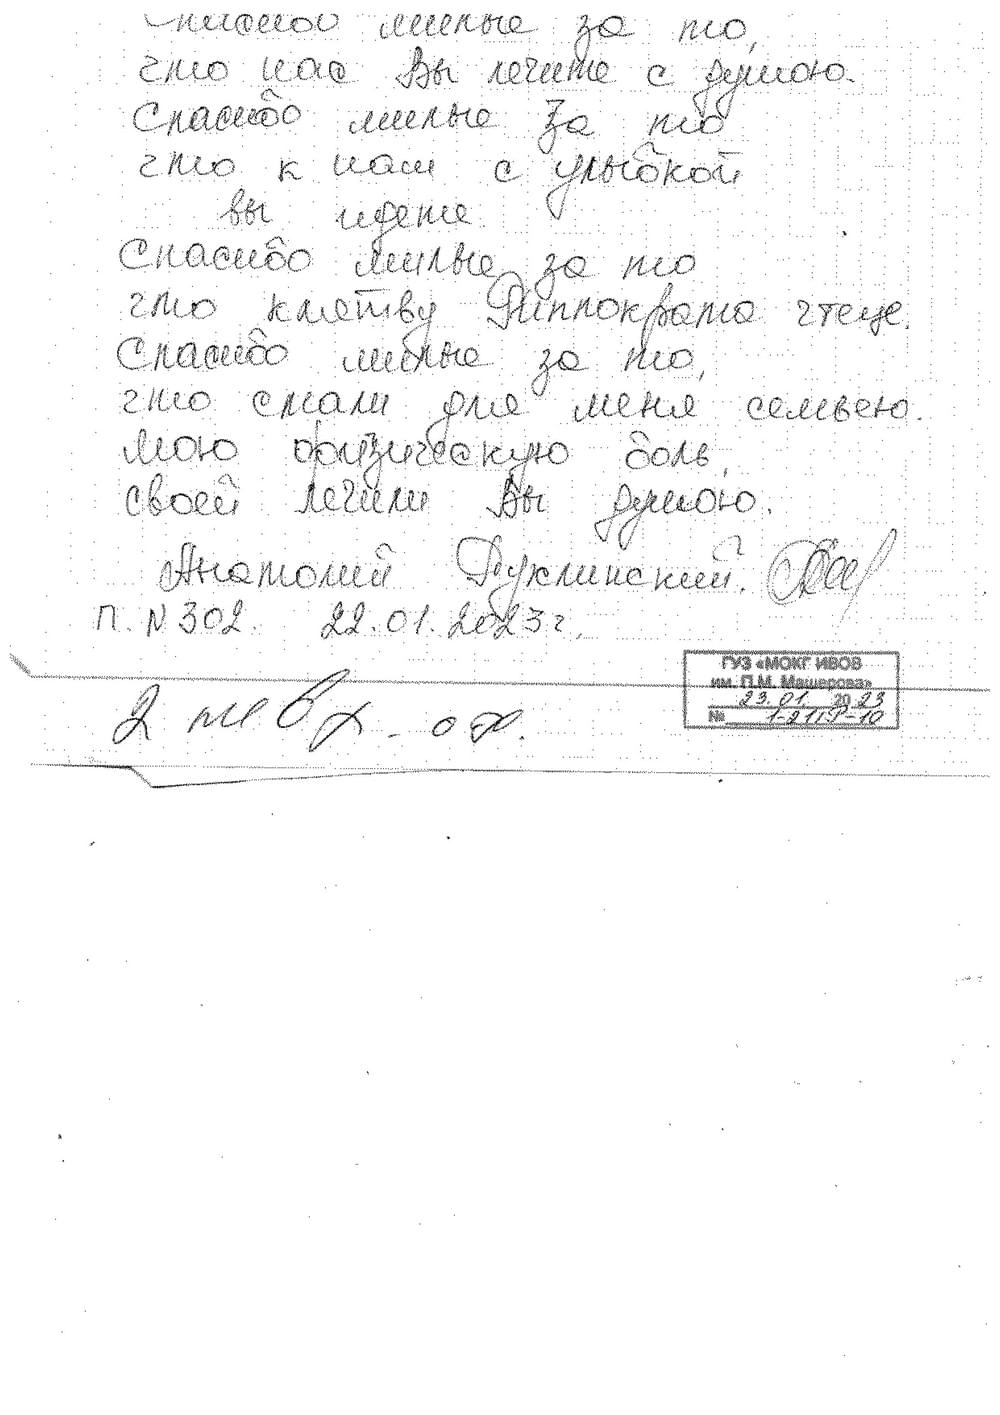 Спасибо милые за то,
что нас Вы лечите с душою.
Спасибо милые за то
что к нам с улыбкой
вы идете
Спасибо милые за то
что клятву Гиппократа чтеце.
Спасибо милые за то,
что стали для меня семьею.
мою физическую боль,
своей лечили Вы душою.
Анатолий Руклинский.
п. N 302. 22.01.2023 г.
ГУЗ «МОКГ ИВОВ
им. П.М. Машерова»
23.01 2023
№ 1-21/
2